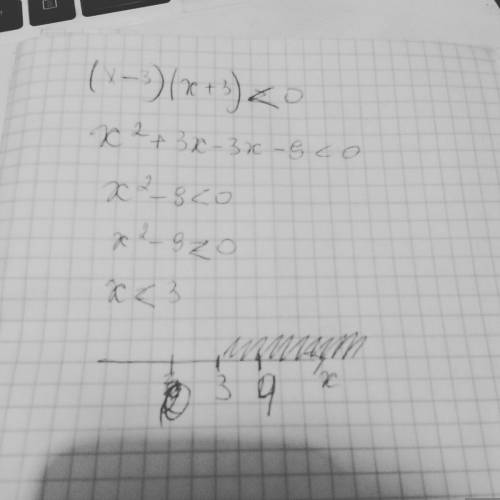 (x-3)(x+3)<0
x²+3x-3x-9<0
x²-9<0
x²-9<0
x<3
3 9 x